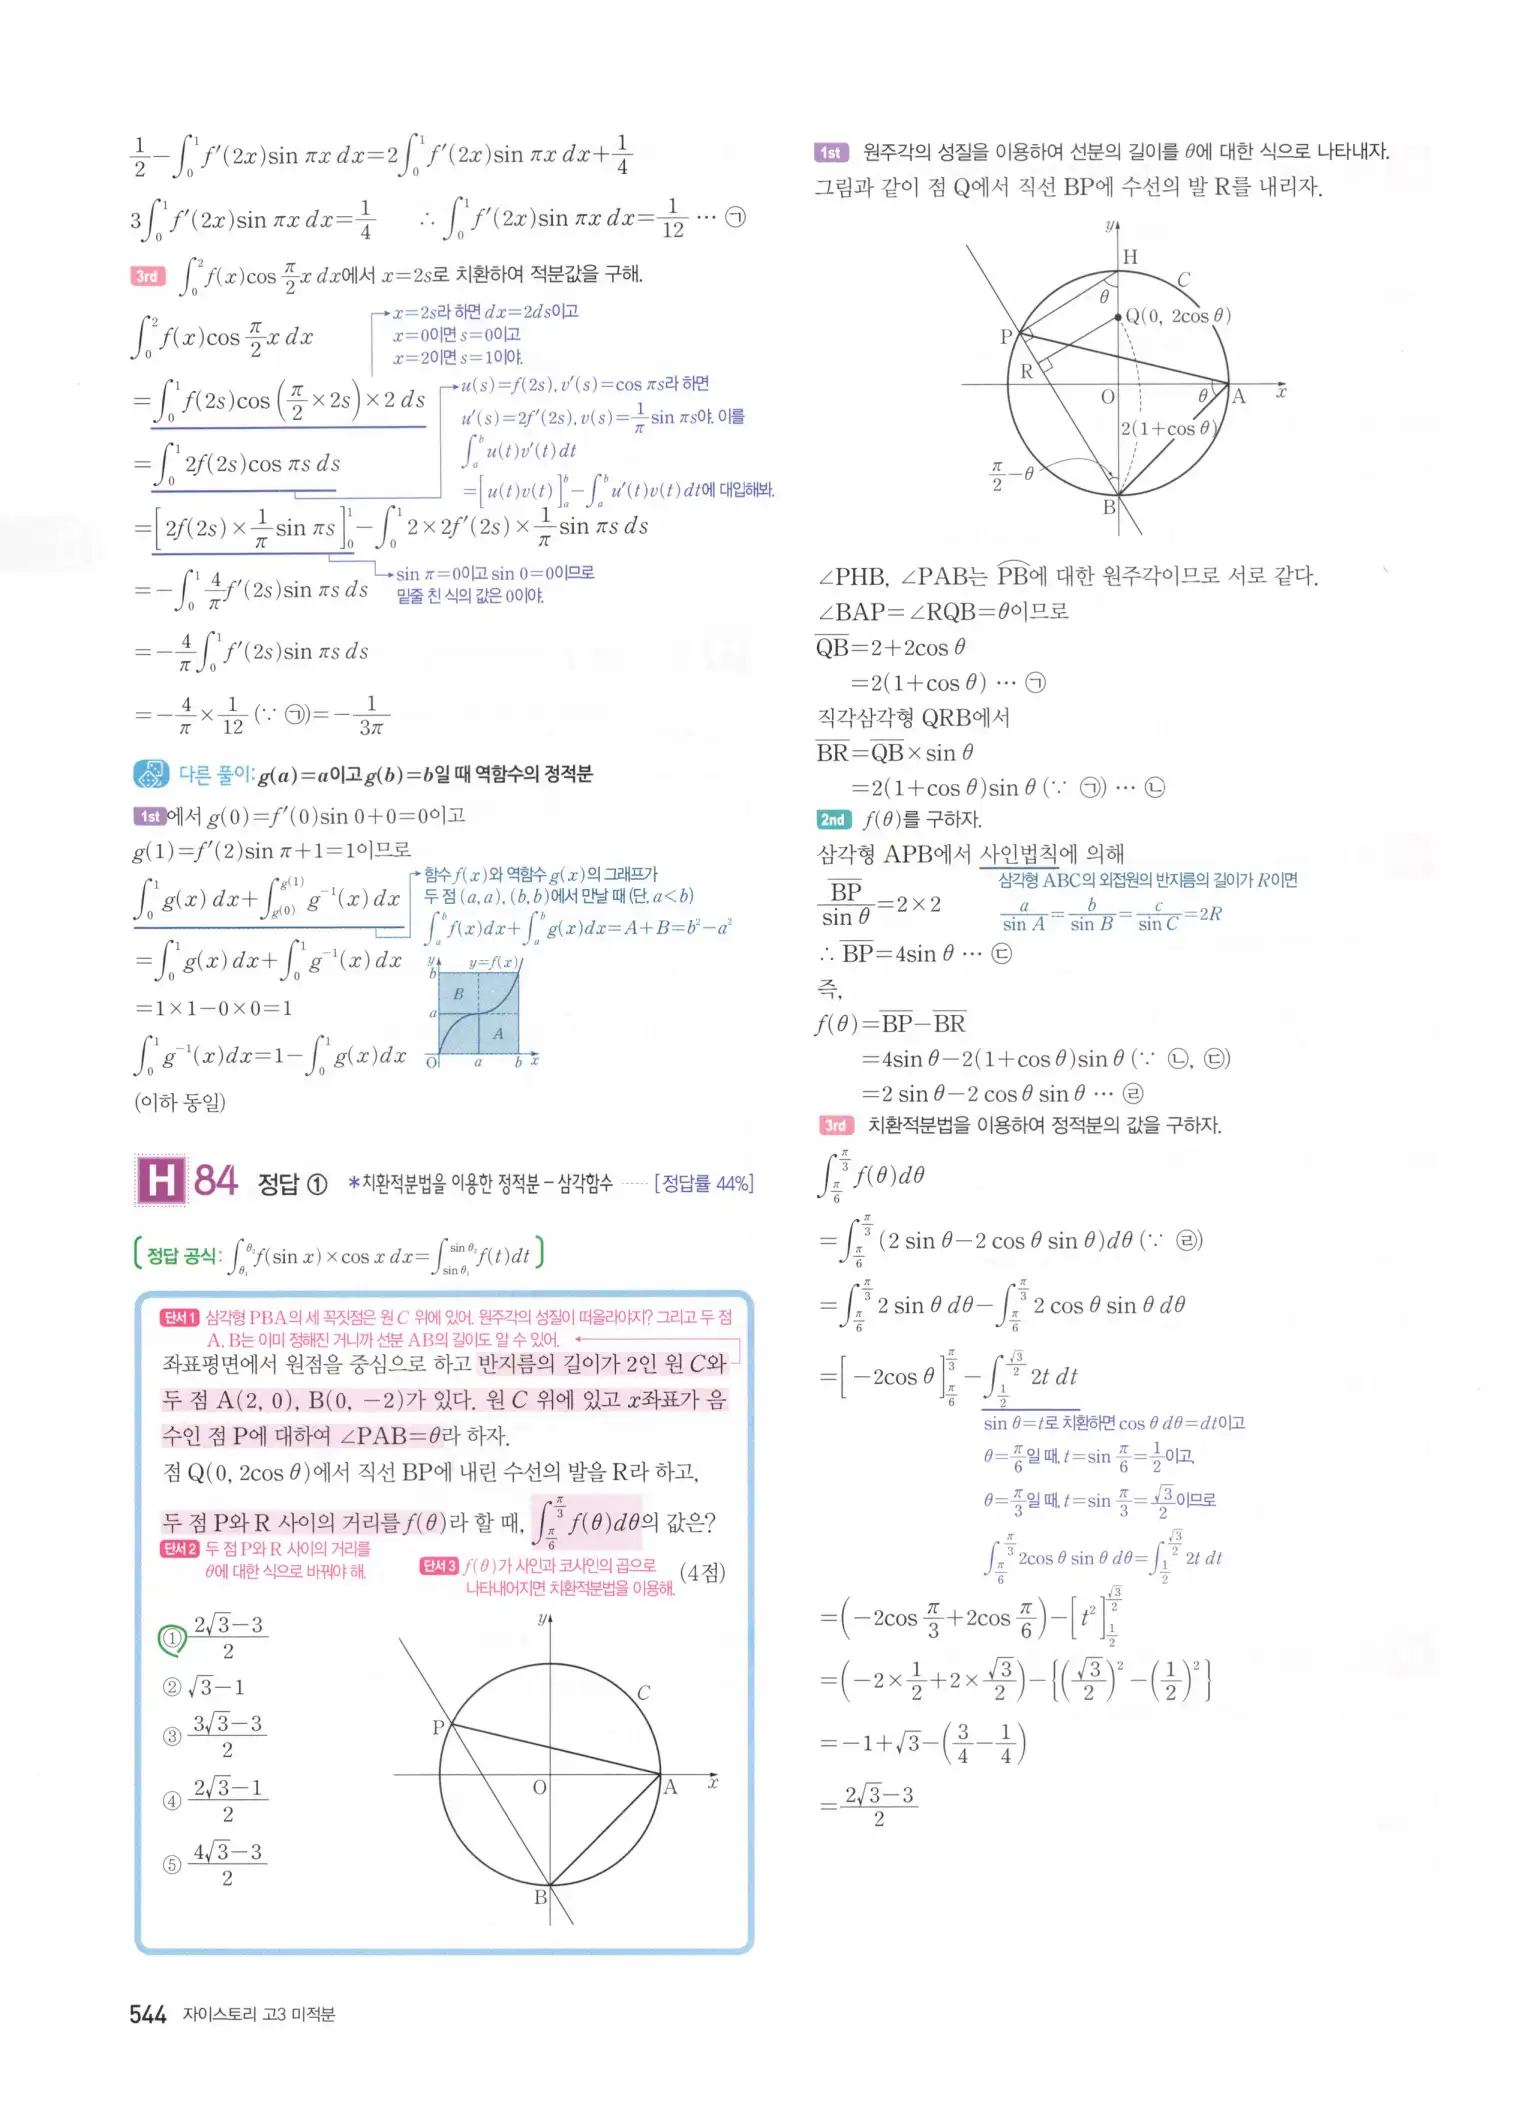 1/2 − ∫₀¹ f′(2x)sin πx dx=2∫₀¹ f′(2x)sin πx dx+1/4
3∫₀¹ f′(2x)sin πx dx=1/4 ∴ ∫₀¹ f′(2x)sin πx dx=1/12 ··· ㉠
3rd ∫₀² f(x)cos π/2 x dx에서 x=2s로 치환하여 적분값을 구해.
∫₀² f(x)cos π/2 x dx
x=2s라 하면 dx=2ds이고
x=0이면 s=0이고
x=2이면 s=1이야.
=∫₀¹ f(2s)cos(π/2×2s)×2 ds
u(s)=f(2s), v′(s)=cos πs라 하면
u′(s)=2f′(2s), v(s)=1/π sin πs야. 이를
∫ₐᵇ u(t)v′(t)dt
=[u(t)v(t)]ₐᵇ−∫ₐᵇ u′(t)v(t)dt에 대입해봐.
=∫₀¹ 2f(2s)cos πs ds
=[2f(2s)×1/π sin πs]₀¹−∫₀¹ 2×2f′(2s)×1/π sin πs ds
sin π=0이고 sin 0=0이므로
밑줄 친 식의 값은 0이야.
=−∫₀¹ 4/π f′(2s)sin πs ds
=−4/π ∫₀¹ f′(2s)sin πs ds
=−4/π×1/12 (∵ ㉠)=−1/3π
다른 풀이: g(a)=a이고 g(b)=b일 때 역함수의 정적분
1st에서 g(0)=f′(0)sin 0+0=0이고
g(1)=f′(2)sin π+1=1이므로
∫₀¹ g(x)dx+∫_{g(0)}^{g(1)} g⁻¹(x)dx
함수 f(x)와 역함수 g(x)의 그래프가
두 점 (a, a), (b, b)에서 만날 때 (단, a<b)
∫ₐᵇ f(x)dx+∫ₐᵇ g(x)dx=A+B=b²−a²
=∫₀¹ g(x)dx+∫₀¹ g⁻¹(x)dx
=1×1−0×0=1
∫₀¹ g⁻¹(x)dx=1−∫₀¹ g(x)dx
y b y=f(x) B a A O a b x
(이하 동일)
H 84 정답 ① *치환적분법을 이용한 정적분 − 삼각함수 ······ [정답률 44%]
[정답 공식: ∫_{θ₁}^{θ₂} f(sin x)×cos x dx=∫_{sin θ₁}^{sin θ₂} f(t)dt]
단서1 삼각형 PBA의 세 꼭짓점은 원 C 위에 있어. 원주각의 성질이 떠올라야지? 그리고 두 점
A, B는 이미 정해진 거니까 선분 AB의 길이도 알 수 있어.
좌표평면에서 원점을 중심으로 하고 반지름의 길이가 2인 원 C와
두 점 A(2, 0), B(0, −2)가 있다. 원 C 위에 있고 x좌표가 음
수인 점 P에 대하여 ∠PAB=θ라 하자.
점 Q(0, 2cos θ)에서 직선 BP에 내린 수선의 발을 R라 하고,
두 점 P와 R 사이의 거리를 f(θ)라 할 때, ∫_{π/6}^{π/3} f(θ)dθ의 값은?
단서2 두 점 P와 R 사이의 거리를
θ에 대한 식으로 바꿔야 해.
단서3 f(θ)가 사인과 코사인의 곱으로
나타내어지면 치환적분법을 이용해.
(4점)
① (2√3−3)/2
② √3−1
③ (3√3−3)/2
④ (2√3−1)/2
⑤ (4√3−3)/2
y C P O A x B
544 자이스토리 고3 미적분
1st 원주각의 성질을 이용하여 선분의 길이를 θ에 대한 식으로 나타내자.
그림과 같이 점 Q에서 직선 BP에 수선의 발 R를 내리자.
y
H
C
θ
Q(0, 2cos θ)
P
R
O θ A x
2(1+cos θ)
π/2−θ
B
∠PHB, ∠PAB는 P͡B에 대한 원주각이므로 서로 같다.
∠BAP=∠RQB=θ이므로
Q̅B̅=2+2cos θ
=2(1+cos θ) ··· ㉠
직각삼각형 QRB에서
B̅R̅=Q̅B̅×sin θ
=2(1+cos θ)sin θ (∵ ㉠) ··· ㉡
2nd f(θ)를 구하자.
삼각형 APB에서 사인법칙에 의해
B̅P̅/sin θ=2×2
삼각형 ABC의 외접원의 반지름의 길이가 R이면
a/sin A=b/sin B=c/sin C=2R
∴ B̅P̅=4sin θ ··· ㉢
즉,
f(θ)=B̅P̅−B̅R̅
=4sin θ−2(1+cos θ)sin θ (∵ ㉡, ㉢)
=2 sin θ−2 cos θ sin θ ··· ㉣
3rd 치환적분법을 이용하여 정적분의 값을 구하자.
∫_{π/6}^{π/3} f(θ)dθ
=∫_{π/6}^{π/3} (2 sin θ−2 cos θ sin θ)dθ (∵ ㉣)
=∫_{π/6}^{π/3} 2 sin θ dθ−∫_{π/6}^{π/3} 2 cos θ sin θ dθ
=[−2cos θ]_{π/6}^{π/3}−∫_{1/2}^{√3/2} 2t dt
sin θ=t로 치환하면 cos θ dθ=dt이고
θ=π/6일 때, t=sin π/6=1/2이고,
θ=π/3일 때, t=sin π/3=√3/2이므로
∫_{π/6}^{π/3} 2cos θ sin θ dθ=∫_{1/2}^{√3/2} 2t dt
=(−2cos π/3+2cos π/6)−[t²]_{1/2}^{√3/2}
=(−2×1/2+2×√3/2)−{(√3/2)²−(1/2)²}
=−1+√3−(3/4−1/4)
=(2√3−3)/2